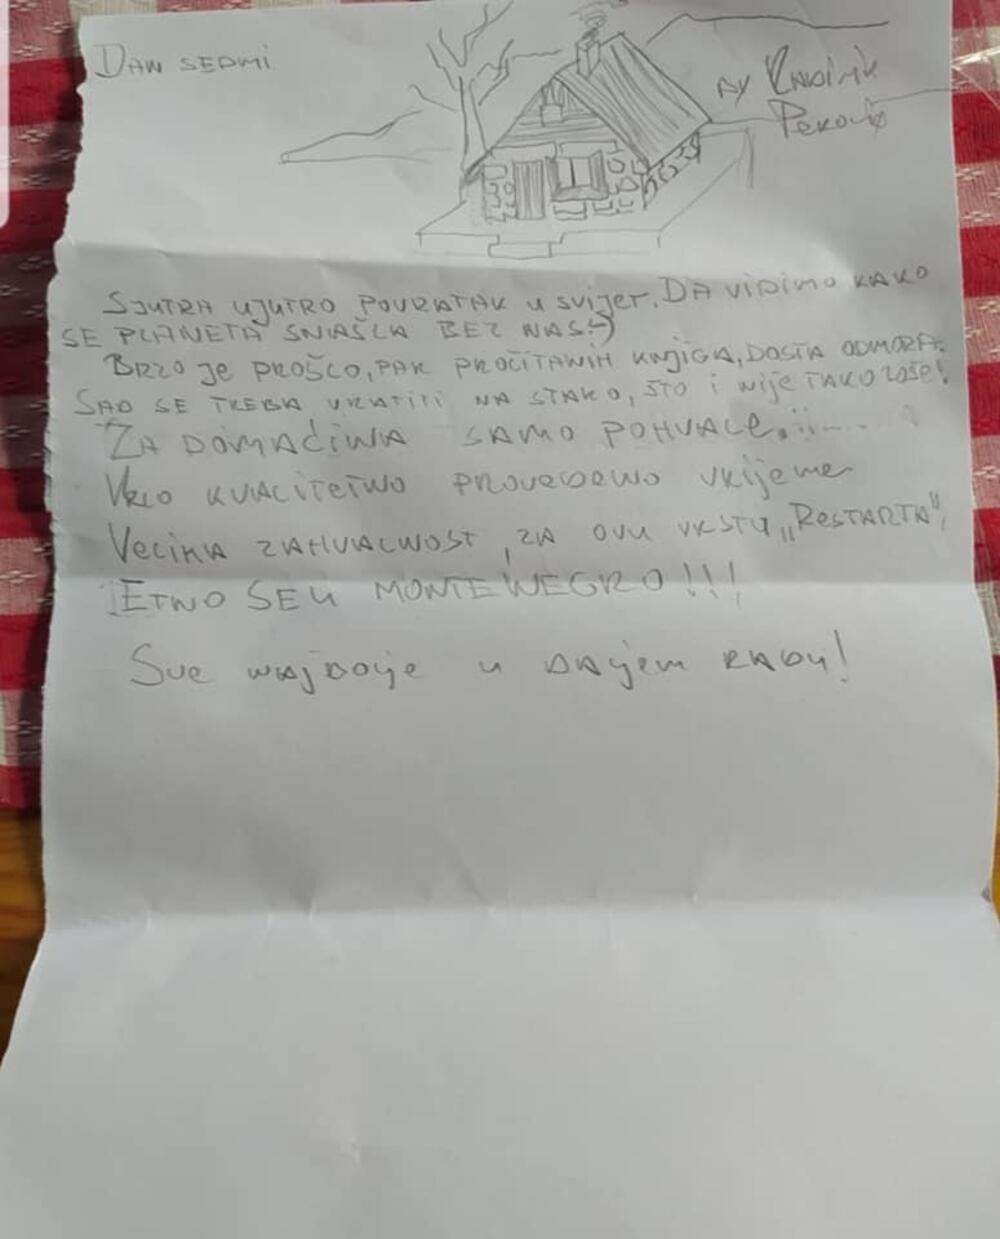 DAN SEDMI
BY RADINK
PEROVIĆ
SJUTRA UJUTRO POVRATAK U SVIJET. DA VIDIMO KAKO
SE PLANETA SNAŠLA BEZ NAS :)
BRZO JE PROŠLO, PAR PROČITANIH KNJIGA, DOSTA ODMORA.
SAD SE TREBA VRATITI NA STARO, ŠTO I NIJE TAKO LOŠE!
ZA DOMAĆINA SAMO POHVALE.
VRLO KVALITETNO PROVEDENO VRIJEME
VELIKA ZAHVALNOST, ZA OVU VRSTU „RESTARTA",
ETNO SELU MONTENEGRO!!!
SVE NAJBOLJE U DALJEM RADU!